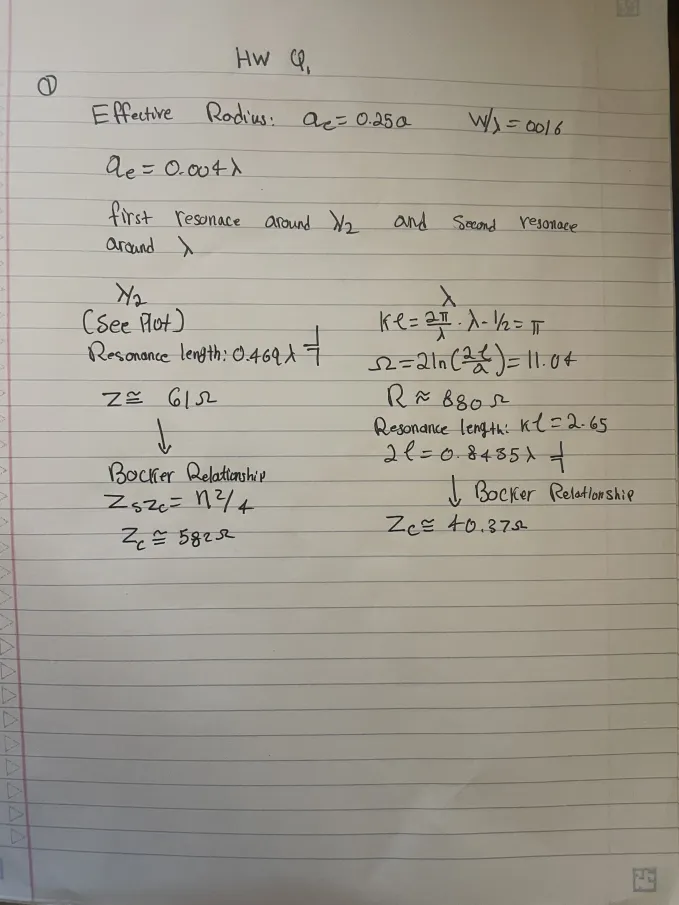 HW Q1
①
Effective Radius: ae = 0.25a W/λ = 0016
ae = 0.004λ
first resonace around λ/2 and second resonace
around λ
λ/2
(See Plot)
Resonance length: 0.469λ
Z ≅ 61Ω
↓
Bocker Relationship
ZsZc = η²/4
Zc ≅ 582Ω
λ
Kℓ = 2π/λ · λ - 1/2 = π
Ω = 2ln(2ℓ/a) = 11.04
R ≈ 880 Ω
Resonance length: Kℓ = 2.65
2ℓ = 0.8435λ
↓ Bocker Relationship
Zc ≅ 40.37Ω